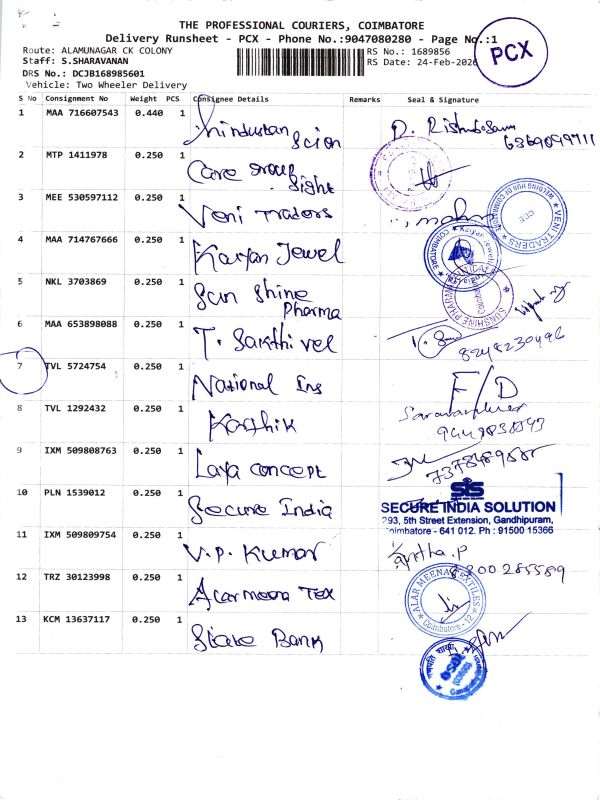 THE PROFESSIONAL COURIERS, COIMBATORE
Delivery Runsheet - PCX - Phone No.:9047080280 - Page No.:1
PCX
Route: ALAMUNAGAR CK COLONY
RS No.: 1689856
Staff: S.SHARAVANAN
RS Date: 24-Feb-2026
DRS No.: DCJB168985601
Vehicle: Two Wheeler Delivery
S No Consignment No Weight PCS Consignee Details Remarks Seal & Signature
1 MAA 716607543 0.440 1 Hindustan Scion
6369099711
2 MTP 1411978 0.250 1 Care group Sight
3 MEE 530597112 0.250 1 Veni Traders
VENI TRADERS
4 MAA 714767666 0.250 1 Karpan Jewel
COIMBATORE
5 NKL 3703869 0.250 1 Sun Shine Pharma
SUNSHINE PHARMA
6 MAA 653898088 0.250 1 T. Sakthivel
8248230496
7 TVL 5724754 0.250 1 National Ins
F/D
8 TVL 1292432 0.250 1 Karthik
9 IXM 509808763 0.250 1 Laya concept
10 PLN 1539012 0.250 1 Secure India
SIS
SECURE INDIA SOLUTION
293, 5th Street Extension, Gandhipuram,
Coimbatore - 641 012. Ph : 91500 15366
11 IXM 509809754 0.250 1 V.P. Kumar
12 TRZ 30123998 0.250 1 Alarmeena Tex
ALAR MEENA TEXTILES
Coimbatore - 12
13 KCM 13637117 0.250 1 State Bank